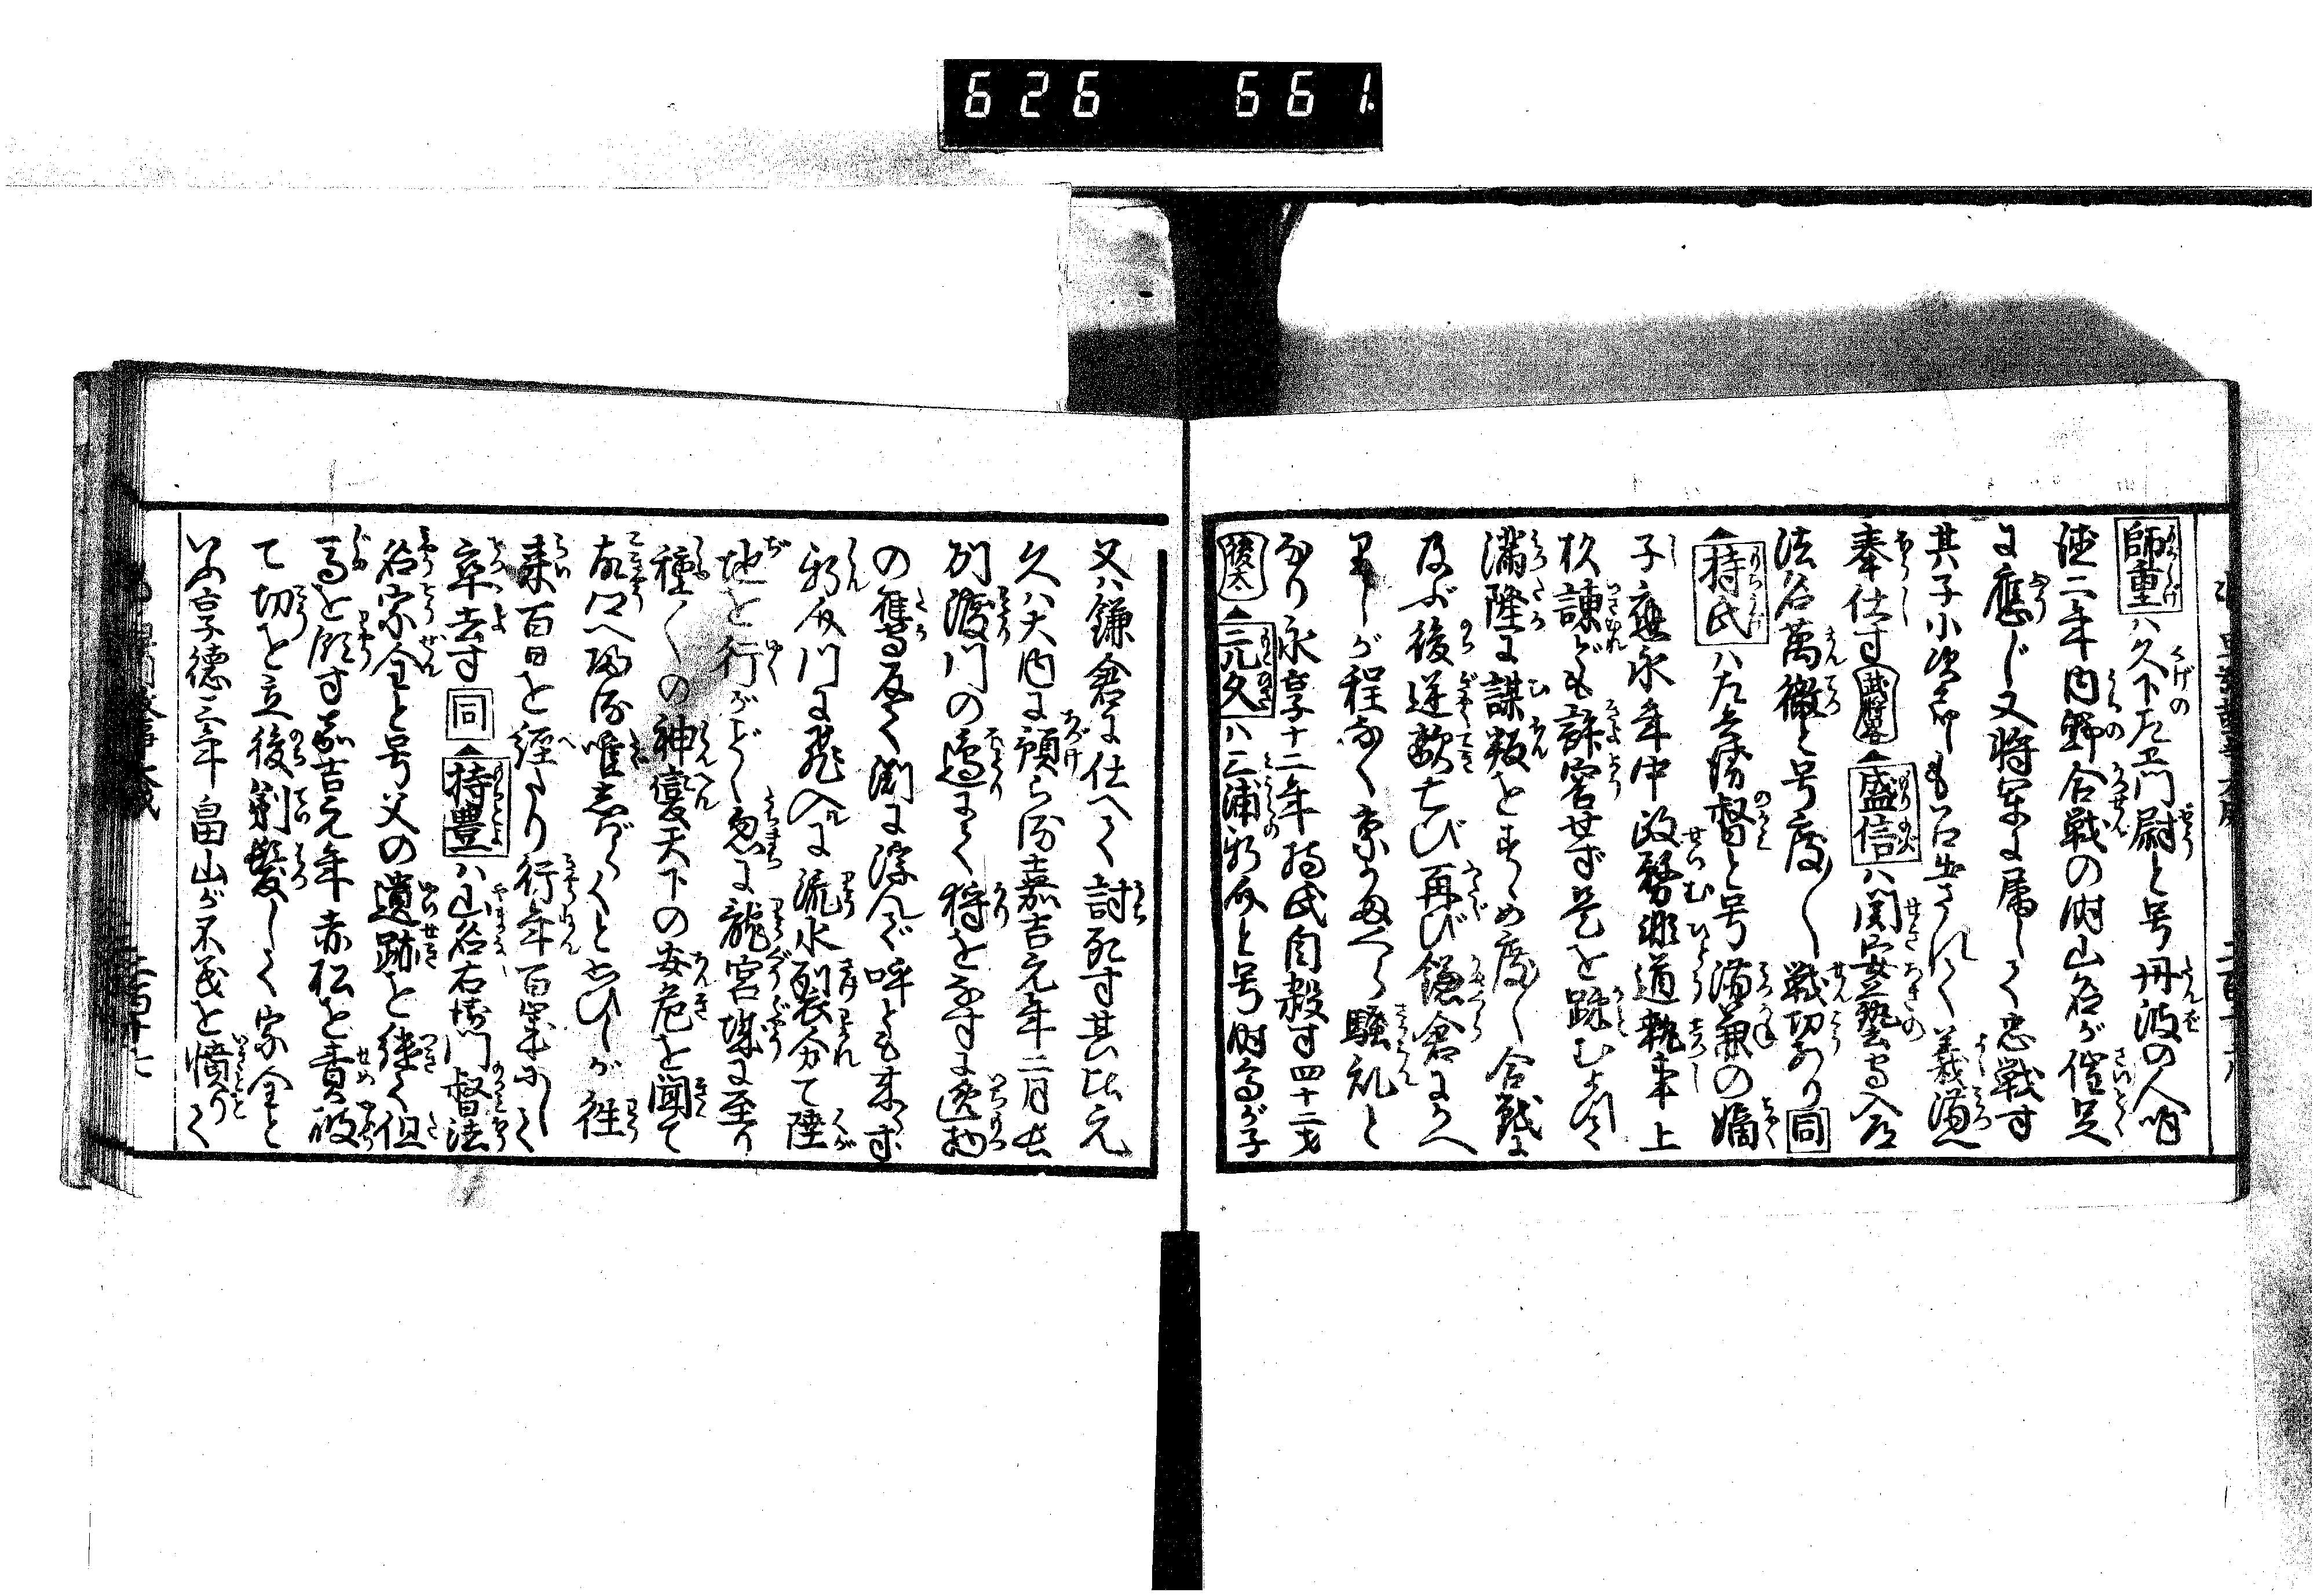 626 661.
師重ハ久下左卫門尉と号丹波の人明
徳二年内野合戦の時山名が催足
に應じ又将軍に属して忠戦す
其子小次郎も召出されて義満へ
奉仕す 武將 盛信ハ関安藝守入道
法名萬徹と号度〳〵戦切あり 同
持氏ハ左兵衛督と号満兼の嫡
子應永年中政務非道執事上
杦諫ども許容せず是を疎むよつて
満隆に謀叛をすゝめ度〳〵合戦に
及ぶ後逆歒亡び再び鎌倉にかへ
りしが程なく京家より騒乱と
なり永享十二年持氏自殺す四十二才
元久ハ三浦新介と号時高が子
又ハ鎌倉に仕へて討死す其比元
久ハ大内に預られ嘉吉元年二月長
列渡川の邉にて狩をなすに逸物
の隼反て渕に浮んで呼ども来らず
新介川に飛入ルに流水列裂分て陸
地を行がごとく忽に龍宮城に至り
種〳〵の神変天下の安危を聞て
故郷へ皈唯しばらくと思ひしが往
来百日を経たり行年百歳にして
卒去す 同 持豊ハ山名右衛門督法
名宗全と号父の遺跡を継て但
馬を領す嘉吉元年赤松を責被
て切を立後剃髪して宗全と
いふ享徳三年畠山が不義を憤りて